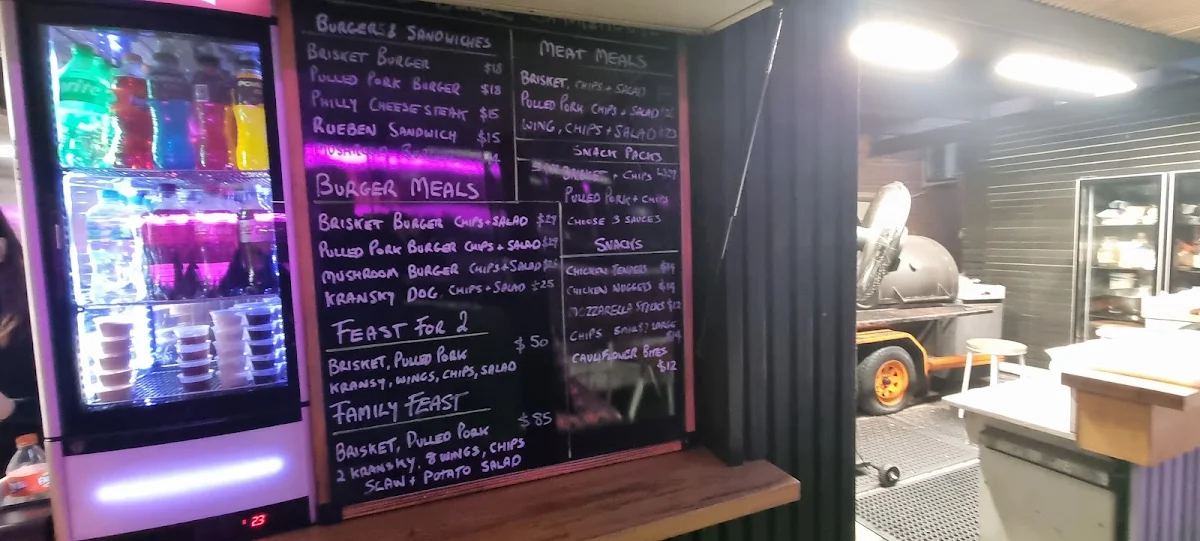 BURGERS & SANDWICHES
BRISKET BURGER $18
PULLED PORK BURGER $18
PHILLY CHEESE STEAK $15
RUEBEN SANDWICH $15
MUSHROOM
BURGER MEALS
BRISKET BURGER CHIPS + SALAD $29
PULLED PORK BURGER CHIPS + SALAD
MUSHROOM BURGER CHIPS + SALAD
KRANSKY DOG, CHIPS + SALAD $25
FEAST FOR 2
$50
BRISKET, PULLED PORK
KRANSY, WINGS, CHIPS, SALAD
FAMILY FEAST
$85
BRISKET, PULLED PORK
2 KRANSKY, 8 WINGS, CHIPS
SLAW + POTATO SALAD
MEAT MEALS
BRISKET, CHIPS + SALAD
PULLED PORK CHIPS + SALAD
WING, CHIPS + SALAD
SNACK PACKS
BRISKET + CHIPS
PULLED PORK + CHIPS
CHOOSE 3 SAUCES
SNACKS
CHICKEN TENDERS $14
CHICKEN NUGGETS $14
MOZZARELLA STICKS $12
CHIPS SMALL LARGE
CAULIFLOWER BITES
$12
sprite
23